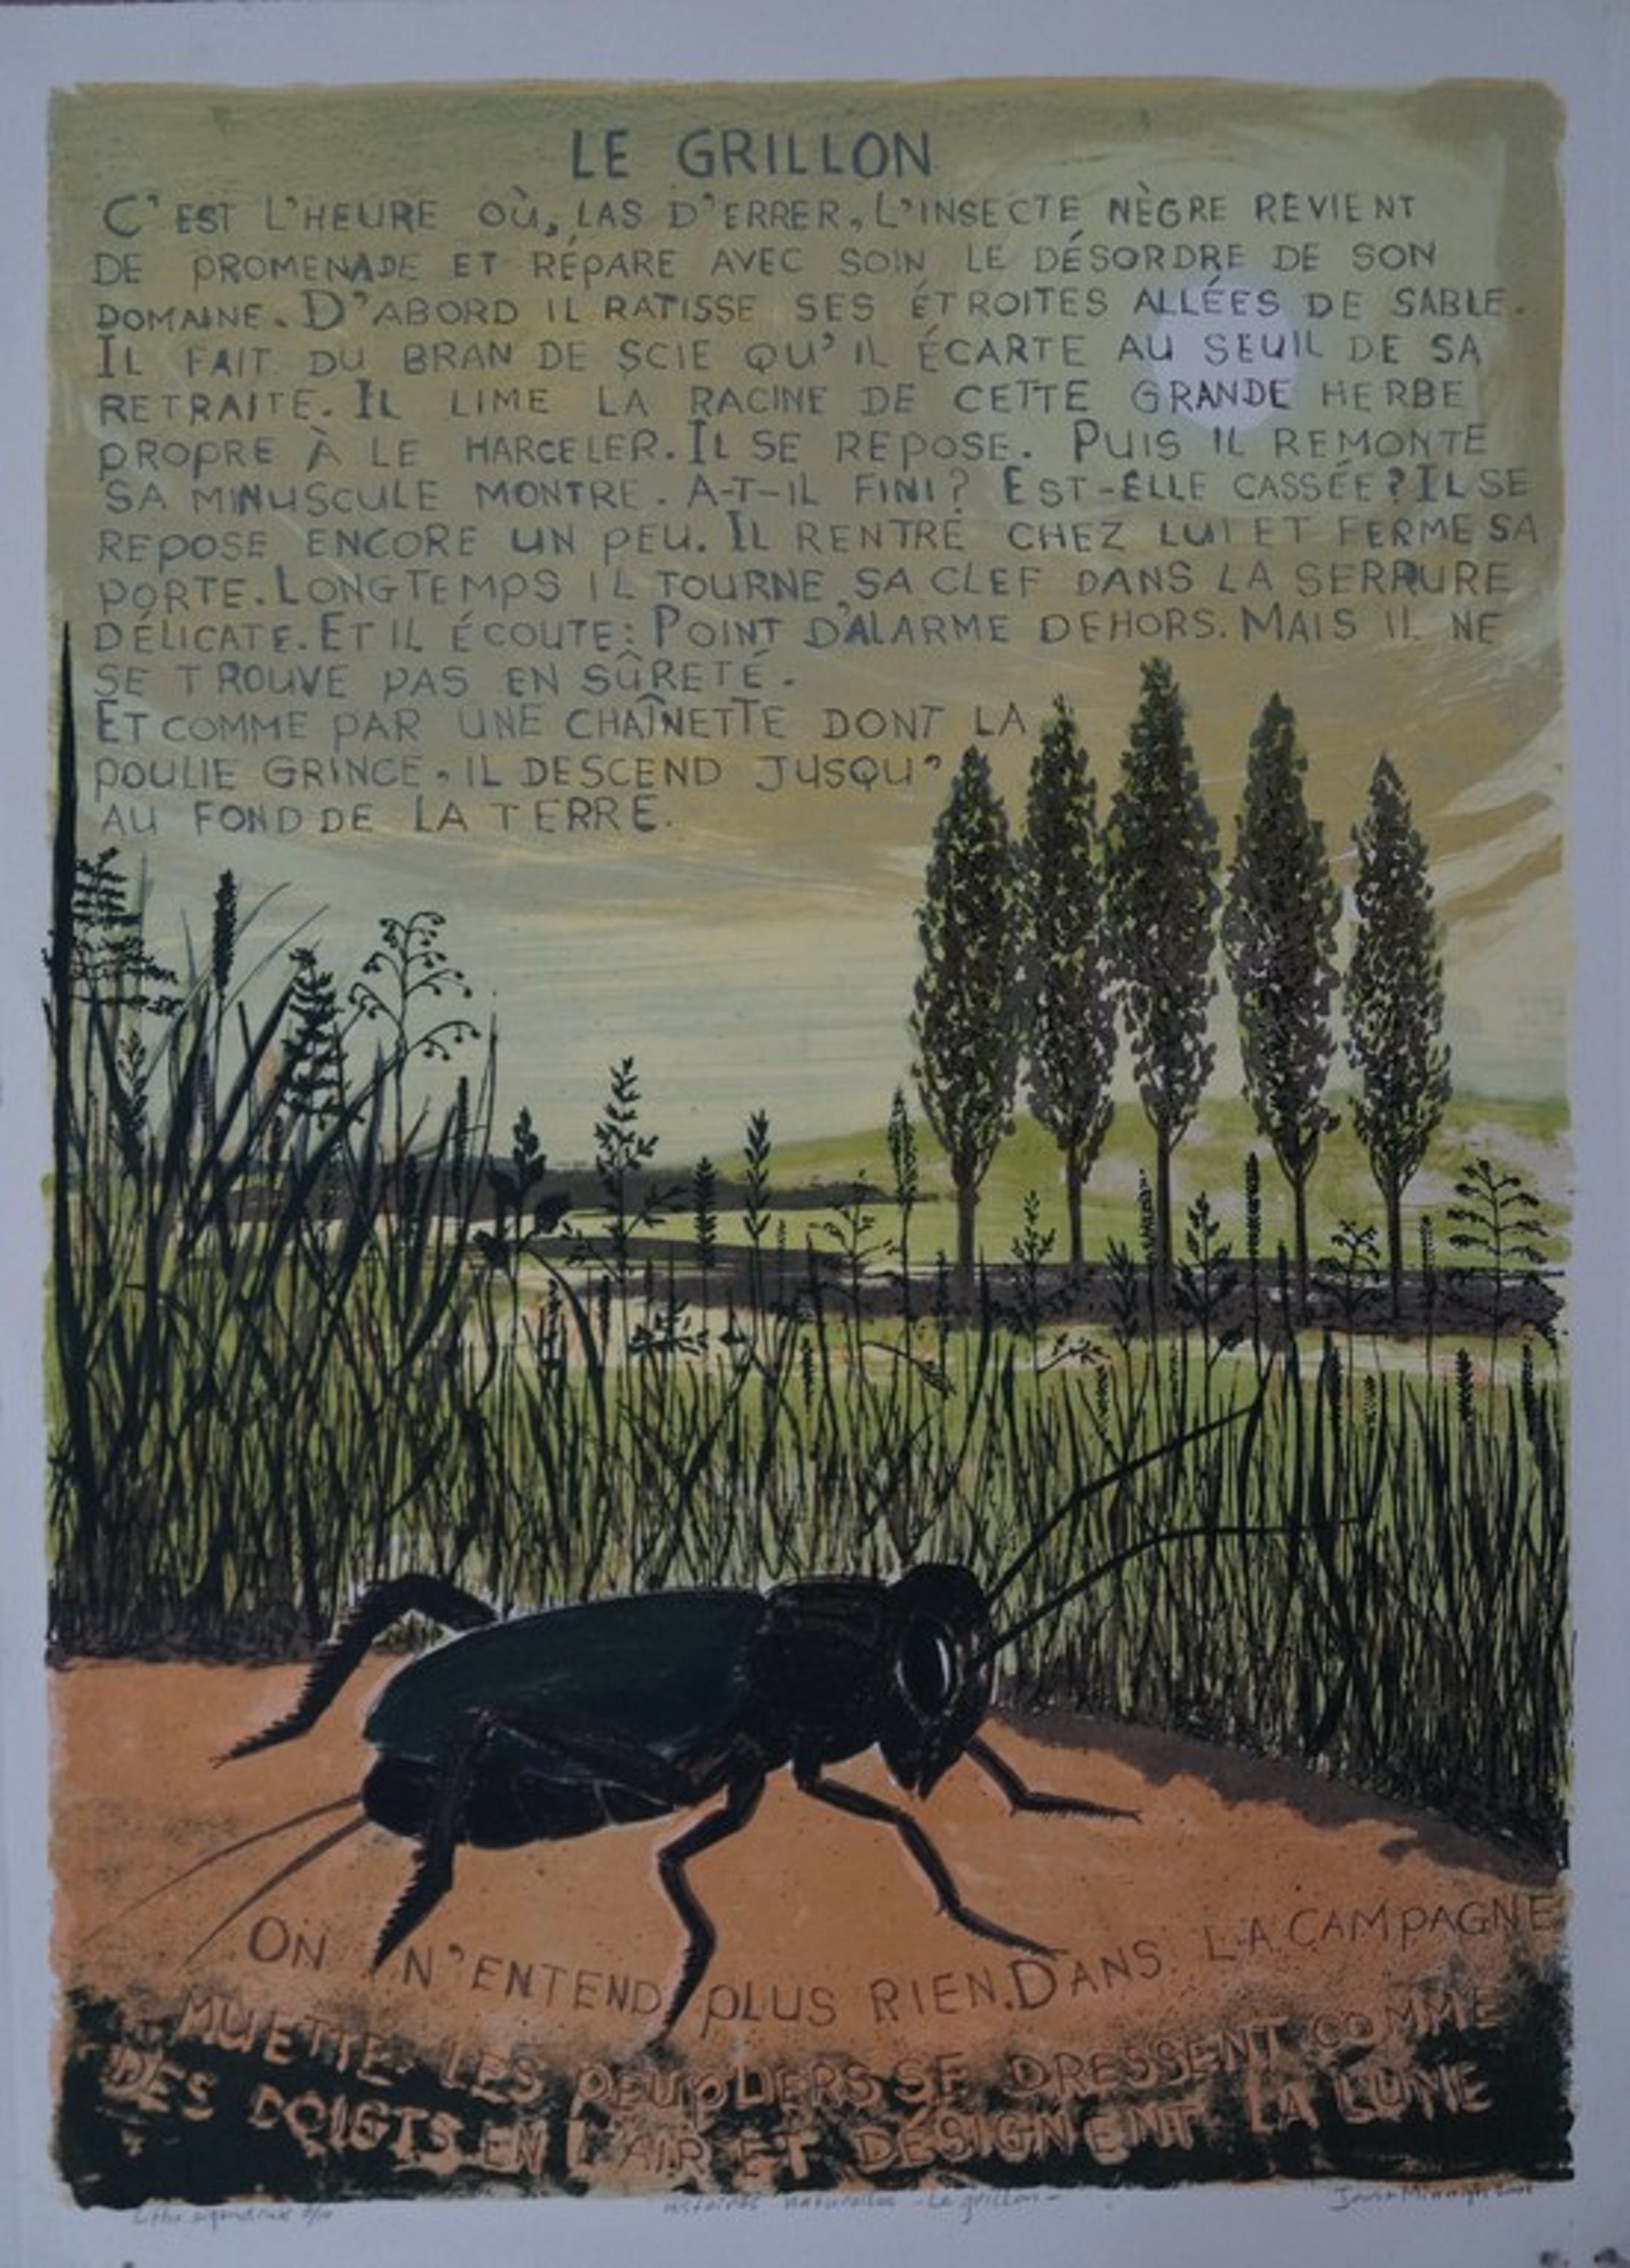 LE GRILLON
C'EST L'HEURE OÙ, LAS D'ERRER, L'INSECTE NÈGRE REVIENT
DE PROMENADE ET RÉPARE AVEC SOIN LE DÉSORDRE DE SON
DOMAINE. D'ABORD IL RATISSE SES ÉTROITES ALLÉES DE SABLE.
IL FAIT DU BRAN DE SCIE QU'IL ÉCARTE AU SEUIL DE SA
RETRAITE. IL LIME LA RACINE DE CETTE GRANDE HERBE
PROPRE À LE HARCELER. IL SE REPOSE. PUIS IL REMONTE
SA MINUSCULE MONTRE. A-T-IL FINI? EST-ELLE CASSÉE? IL SE
REPOSE ENCORE UN PEU. IL RENTRE CHEZ LUI ET FERME SA
PORTE. LONGTEMPS IL TOURNE SA CLEF DANS LA SERRURE
DÉLICATE. ET IL ÉCOUTE: POINT D'ALARME DEHORS. MAIS IL NE
SE TROUVE PAS EN SÛRETÉ.
ET COMME PAR UNE CHAÎNETTE DONT LA
POULIE GRINCE, IL DESCEND JUSQU'
AU FOND DE LA TERRE.
ON N'ENTEND PLUS RIEN. DANS LA CAMPAGNE
MUETTE, LES PEUPLIERS SE DRESSENT COMME
DES DOIGTS EN L'AIR ET DÉSIGNENT LA LUNE
naturelles - Le grillon -